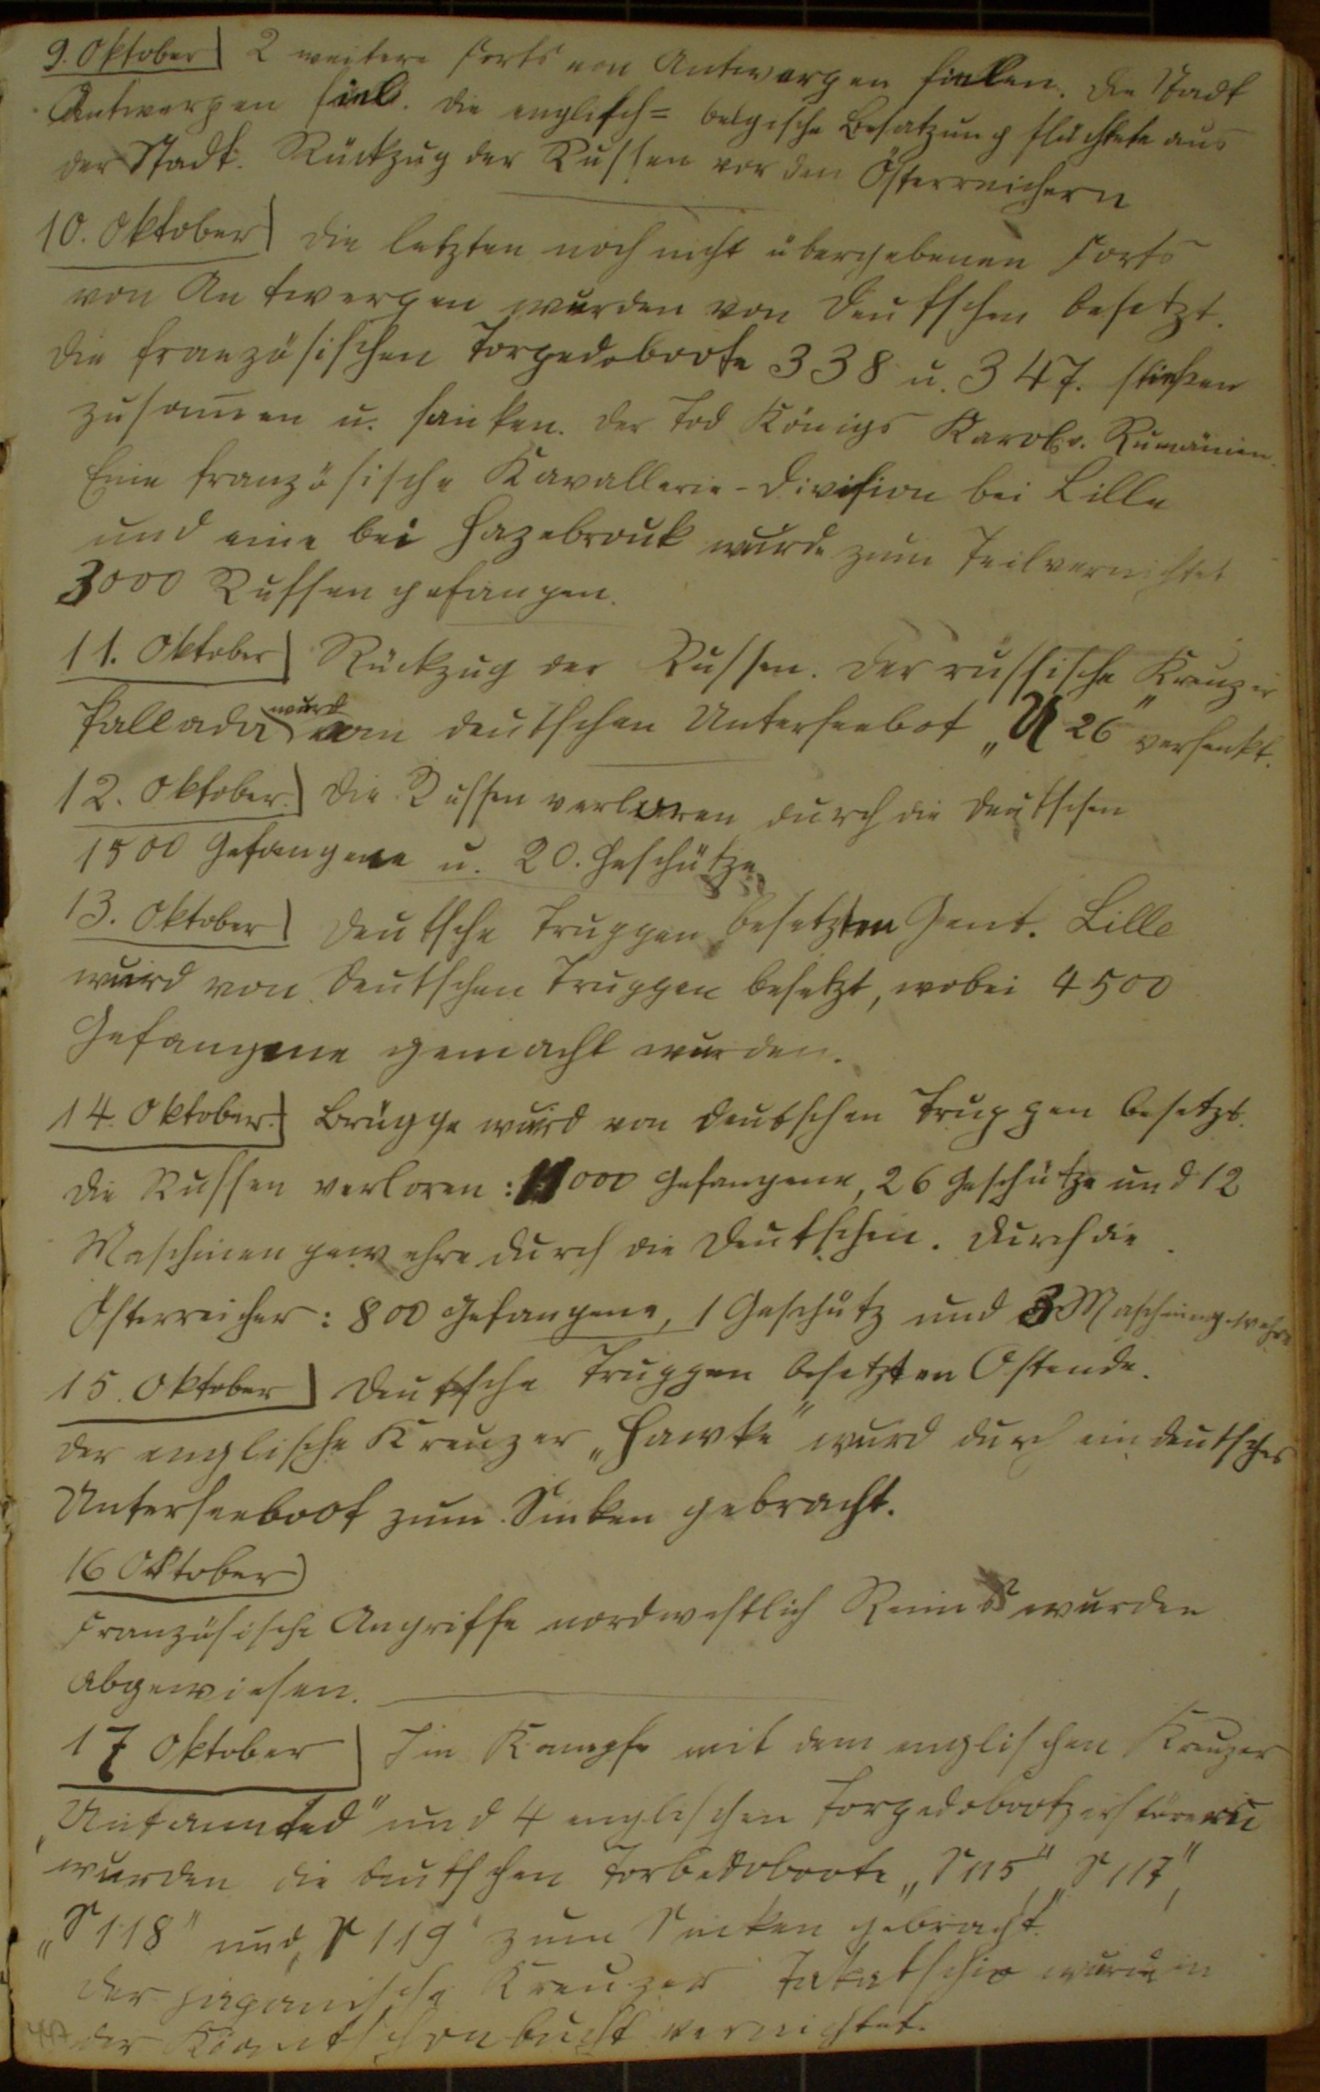 9. Oktober 2 weitere Forts von Antwerpen fielen. Die Stadt
Antwerpen fiel. Die englisch= belgische Besatzung flüchtete aus
der Stadt. Rückzug der Russen vor den Österreichern
10. Oktober die letzten noch nicht übergebenen Forts
von Antwerpen wurden von Deutschen besetzt.
Die französischen Torpedoboote 338 u. 347. stießen
zusammen u. sanken. Der Tod Königs Karol v. Rumänien.
Eine französische Kavallerie-Division bei Lille
und eine bei Hazebrouk wurde zum Teil vernichtet
3000 Russen gefangen.
11. Oktober Rückzug der Russen. Der russische Kreuzer
Pallada wurd vom deutschen Unterseebot „U 26" versenkt.
12. Oktober. Die Russen verloren durch die Deutschen
1500 Gefangene u. 20. Geschütze
13. Oktober Deutsche Truppen besetzten Gent. Lille
wurd von Deutschen Truppen besetzt, wobei 4500
Gefangene gemacht wurden.
14. Oktober. Brügge wurd von Deutschen Truppen besetzt.
Die Russen verloren: 000 Gefangene, 26 Geschütze und 12
Maschinengewehre durch die Deutschen. Durch die
Österreicher: 800 Gefangene, 1 Geschütz und 3 Maschinengewehre
15. Oktober Deutsche Truppen besetzten Ostende.
Der englische Kreuzer „Hawke" wurd durch ein deutsches
Unterseeboot zum Sinken gebracht.
16 Oktober
Französische Angriffe nordwestlich Reims wurden
abgewiesen.
17 Oktober Im Kampfe mit dem englischen Kreuzer
„Untaunted" und 4 englischen Torpedobootzerstörern
wurden die deutschen Torbedoboote „S 115", S 117",
„S 118" und „S 119" zum Sinken gebracht.
Der japanische Kreuzer Takatschio wurd in
der Kiautschoubucht vernichtet.